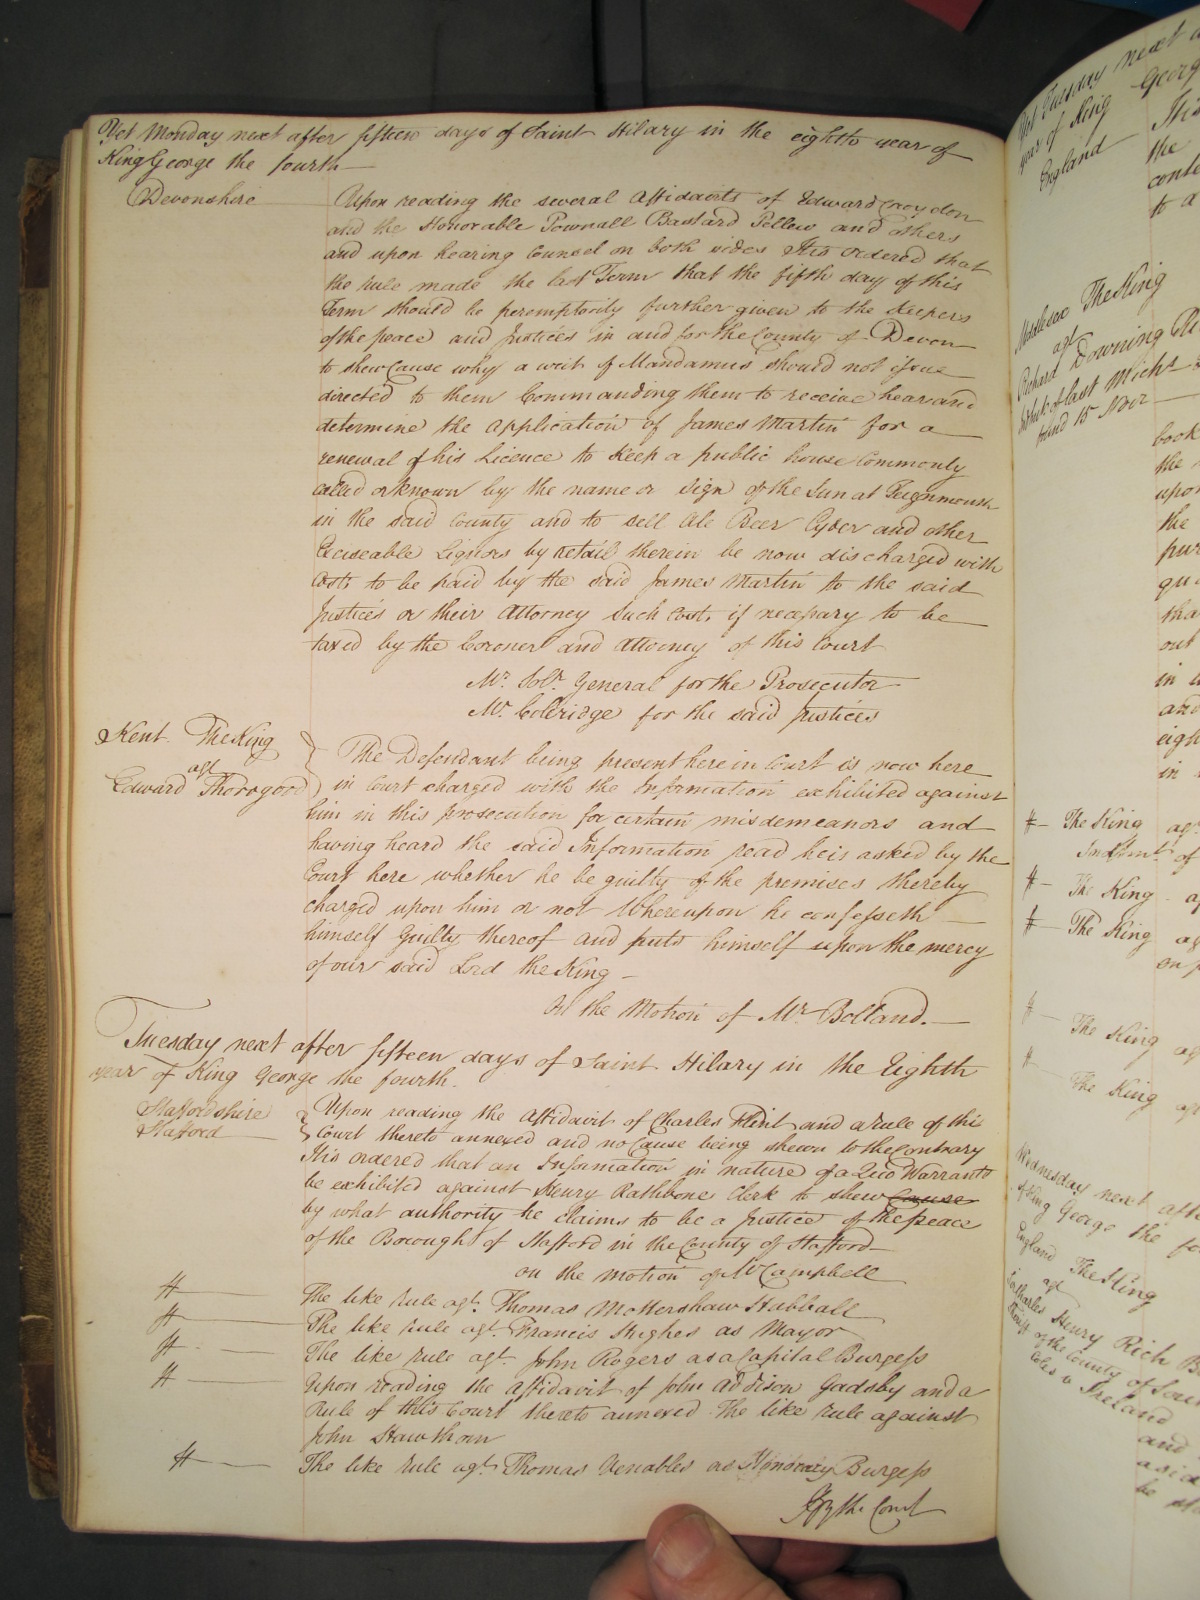 Yet Monday next after fifteen days of Saint Hilary in the eighth year of
King George the fourth
Devonshire
Upon reading the several Affidavits of Edward Croydon
and the Honorable Pownall Bastard Pellew and others
and upon hearing Counsel on both sides It is ordered that
the rule made the last Term that the fifth day of this
Term should be peremptorily further given to the Keepers
of the peace and Justices in and for the County of Devon
to shew Cause why a writ of Mandamus should not issue
directed to them Commanding them to receive hear and
determine the application of James Martin for a
renewal of his Licence to keep a public house Commonly
called or known by the name or sign of the Sun at Teignmouth
in the said County and to sell Ale Beer Cyder and other
Exciseable Liquors by retail therein be now discharged with
Costs to be paid by the said James Martin to the said
Justices or their Attorney Such Costs if necessary to be
taxed by the Coroner and Attorney of this Court
Mr. Solr. General for the Prosecutor
Mr. Coleridge for the said Justices
Kent The King
agt
Edward Thorogood
The Defendant being present here in Court is now here
in Court charged with the Information exhibited against
him in this prosecution for certain misdemeanors and
having heard the said Information read he is asked by the
Court here whether he be guilty of the premises thereby
charged upon him or not Whereupon he confesseth
himself Guilty thereof and puts himself upon the mercy
of our said Lord the King
On the Motion of Mr. Bolland.
Tuesday next after fifteen days of Saint Hilary in the Eighth
year of King George the fourth.
Staffordshire
Stafford
Upon reading the Affidavit of Charles Flint and a rule of this
Court thereto annexed and no Cause being shewn to the Contrary
It is ordered that an Information in nature of a Quo Warranto
be exhibited against Henry Rathbone Clerk to shew Cause
by what authority he claims to be a Justice of the peace
of the Borough of Stafford in the County of Stafford
on the motion of Mr Campbell
The like rule agt. Thomas Mottershaw Stabball
The like rule agt. Francis Hughes as Mayor
The like rule agt. John Rogers as a Capital Burgess
Upon reading the Affidavit of John Addison Gadsby and a
Rule of this Court thereto annexed The like rule against
John Hawthorn
The like rule agt. Thomas Venables as Honorary Burgess
By the Court
Yet Tuesday next
year of King Georg
England
the
to a
Middlesex The King
agt
Richard Downing
book
the
upon
the
tha
out
in
and
eigh
in
The King agt.
of
The King
The King ag
on
The King ag
The King agt
Wednesday next afte
of King George the fo
England The King
agt
Sir Charles Henry Rich
of the County of
Ireland
and
be